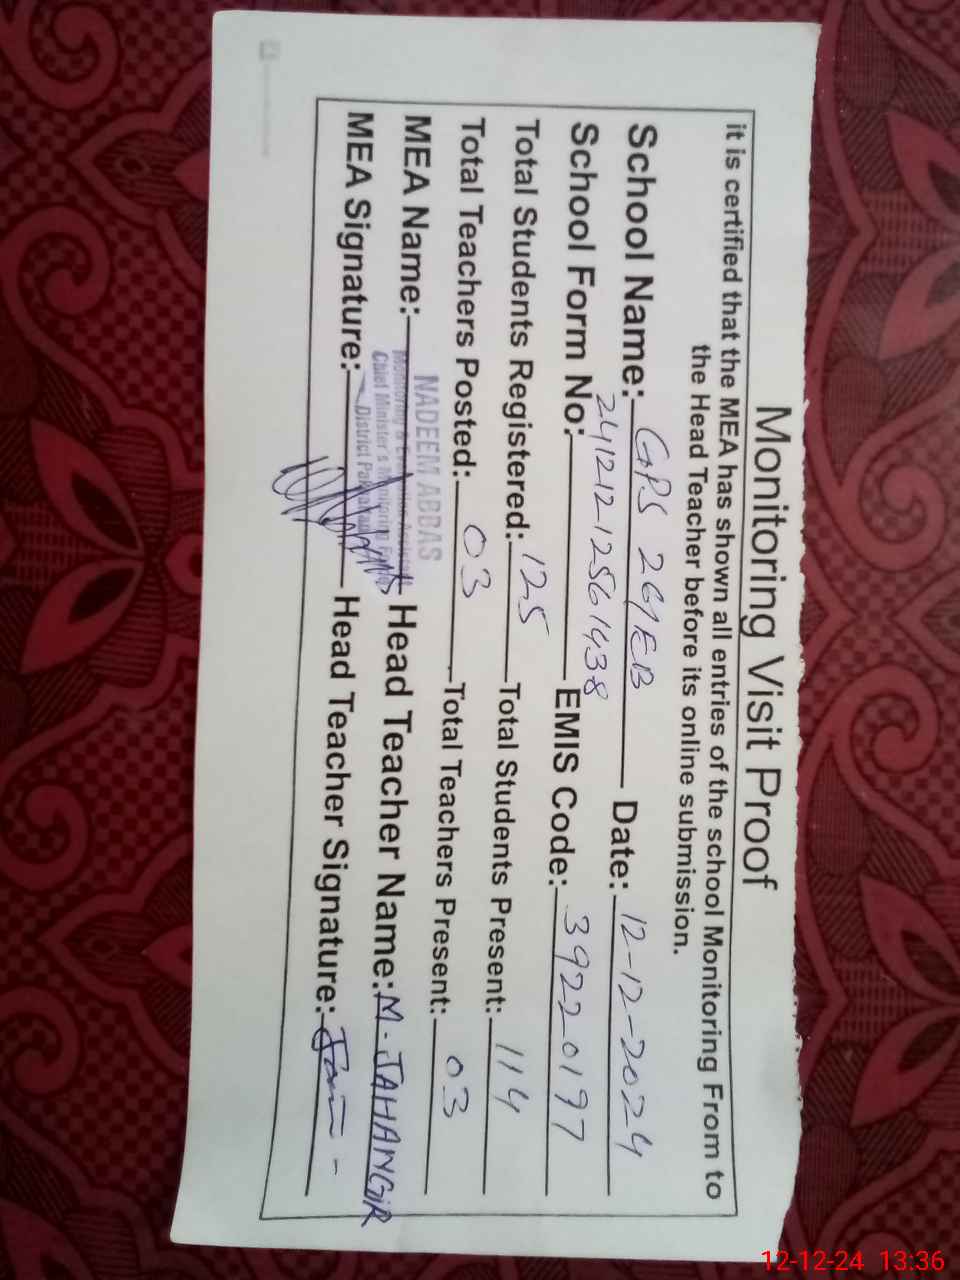 Monitoring Visit Proof
it is certified that the MEA has shown all entries of the school Monitoring From to
the Head Teacher before its online submission.
School Name: GPS 26/EB Date: 12-12-2024
School Form No: 24121212561438 EMIS Code: 39220197
Total Students Registered: 125 Total Students Present: 114
Total Teachers Posted: 03 Total Teachers Present: 03
NADEEM ABBAS
MEA Name: Head Teacher Name: M. JAHANGIR
Monitoring & Evaluation Assistant
Chief Minister's Monitoring Force
District Pakpattan
MEA Signature: Head Teacher Signature:
12-12-24 13:36